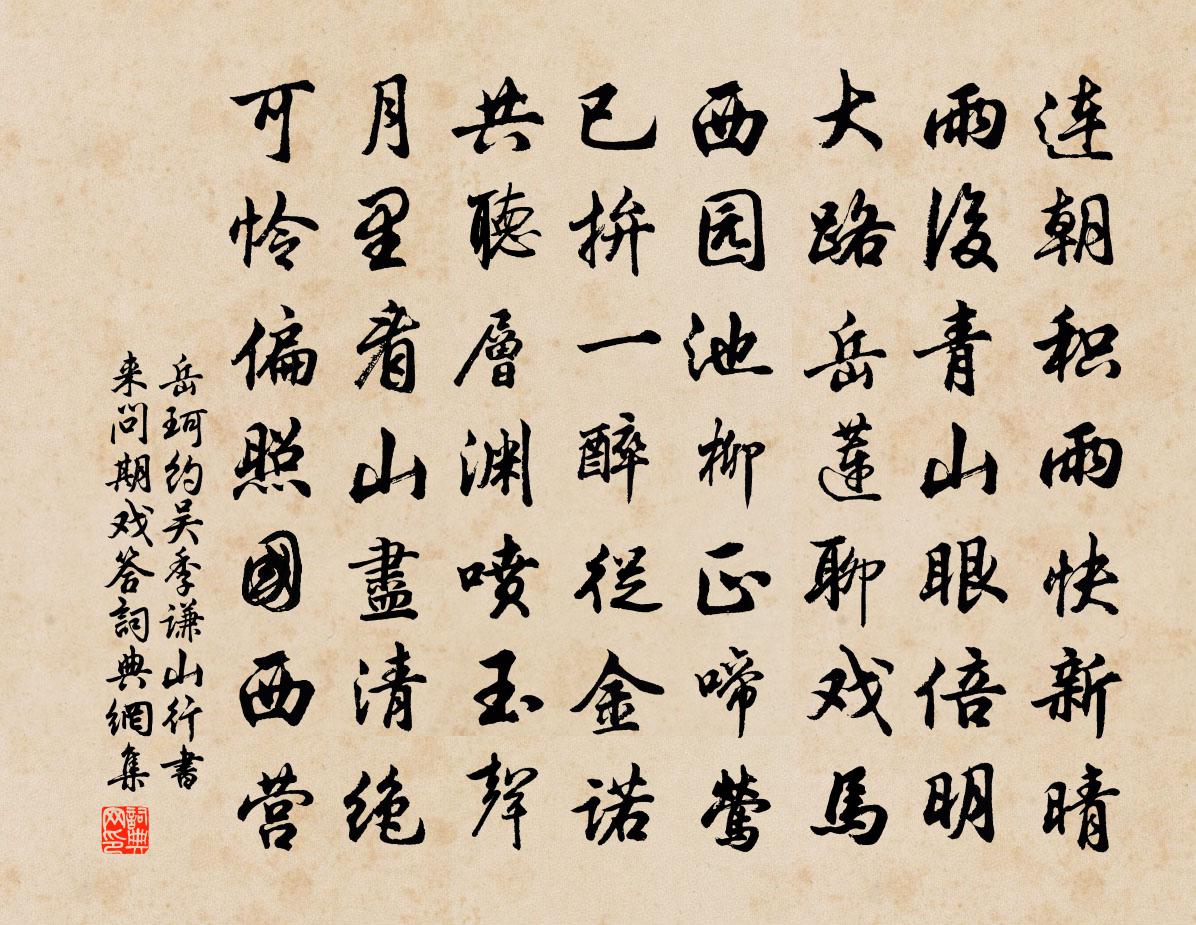 连朝积雨快新晴
雨後青山眼倍明
大路岳莲聊戏馬
西园池柳正啼鶯
已拚一醉從金诺
共聽層渊喷玉聲
月里看山盡清绝
可怜偏照國西营
岳珂约吴季谦山行书
来問期戏答詞典網集
詞典
网印